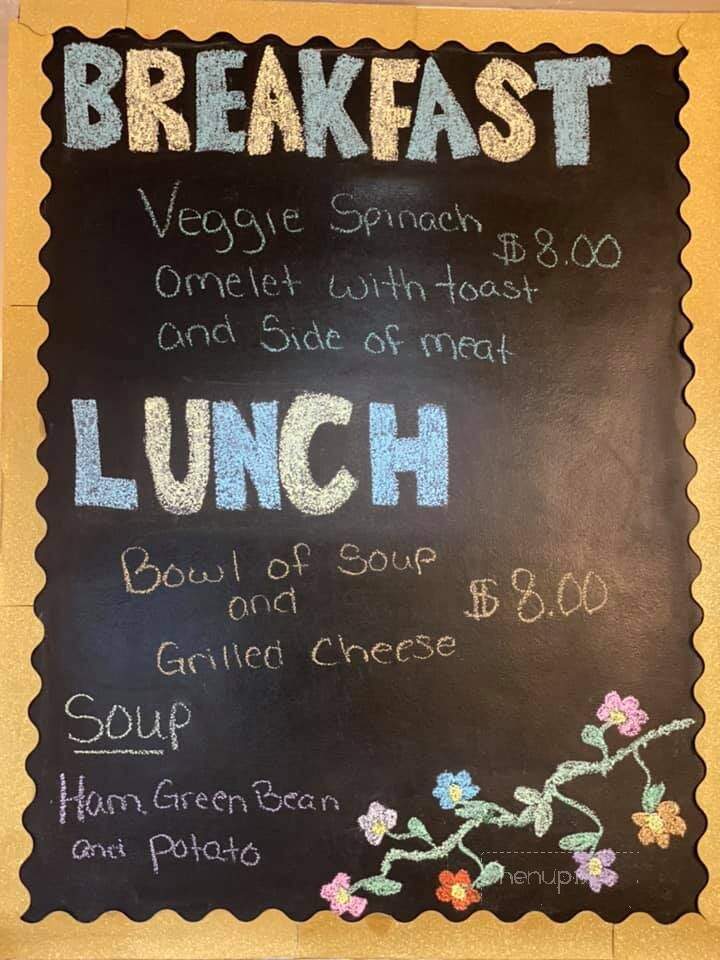 BREAKFAST
Veggie Spinach $8.00
omelet with toast
and Side of meat
LUNCH
Bowl of Soup
and $8.00
Grilled Cheese
Soup
Ham Green Bean
and potato